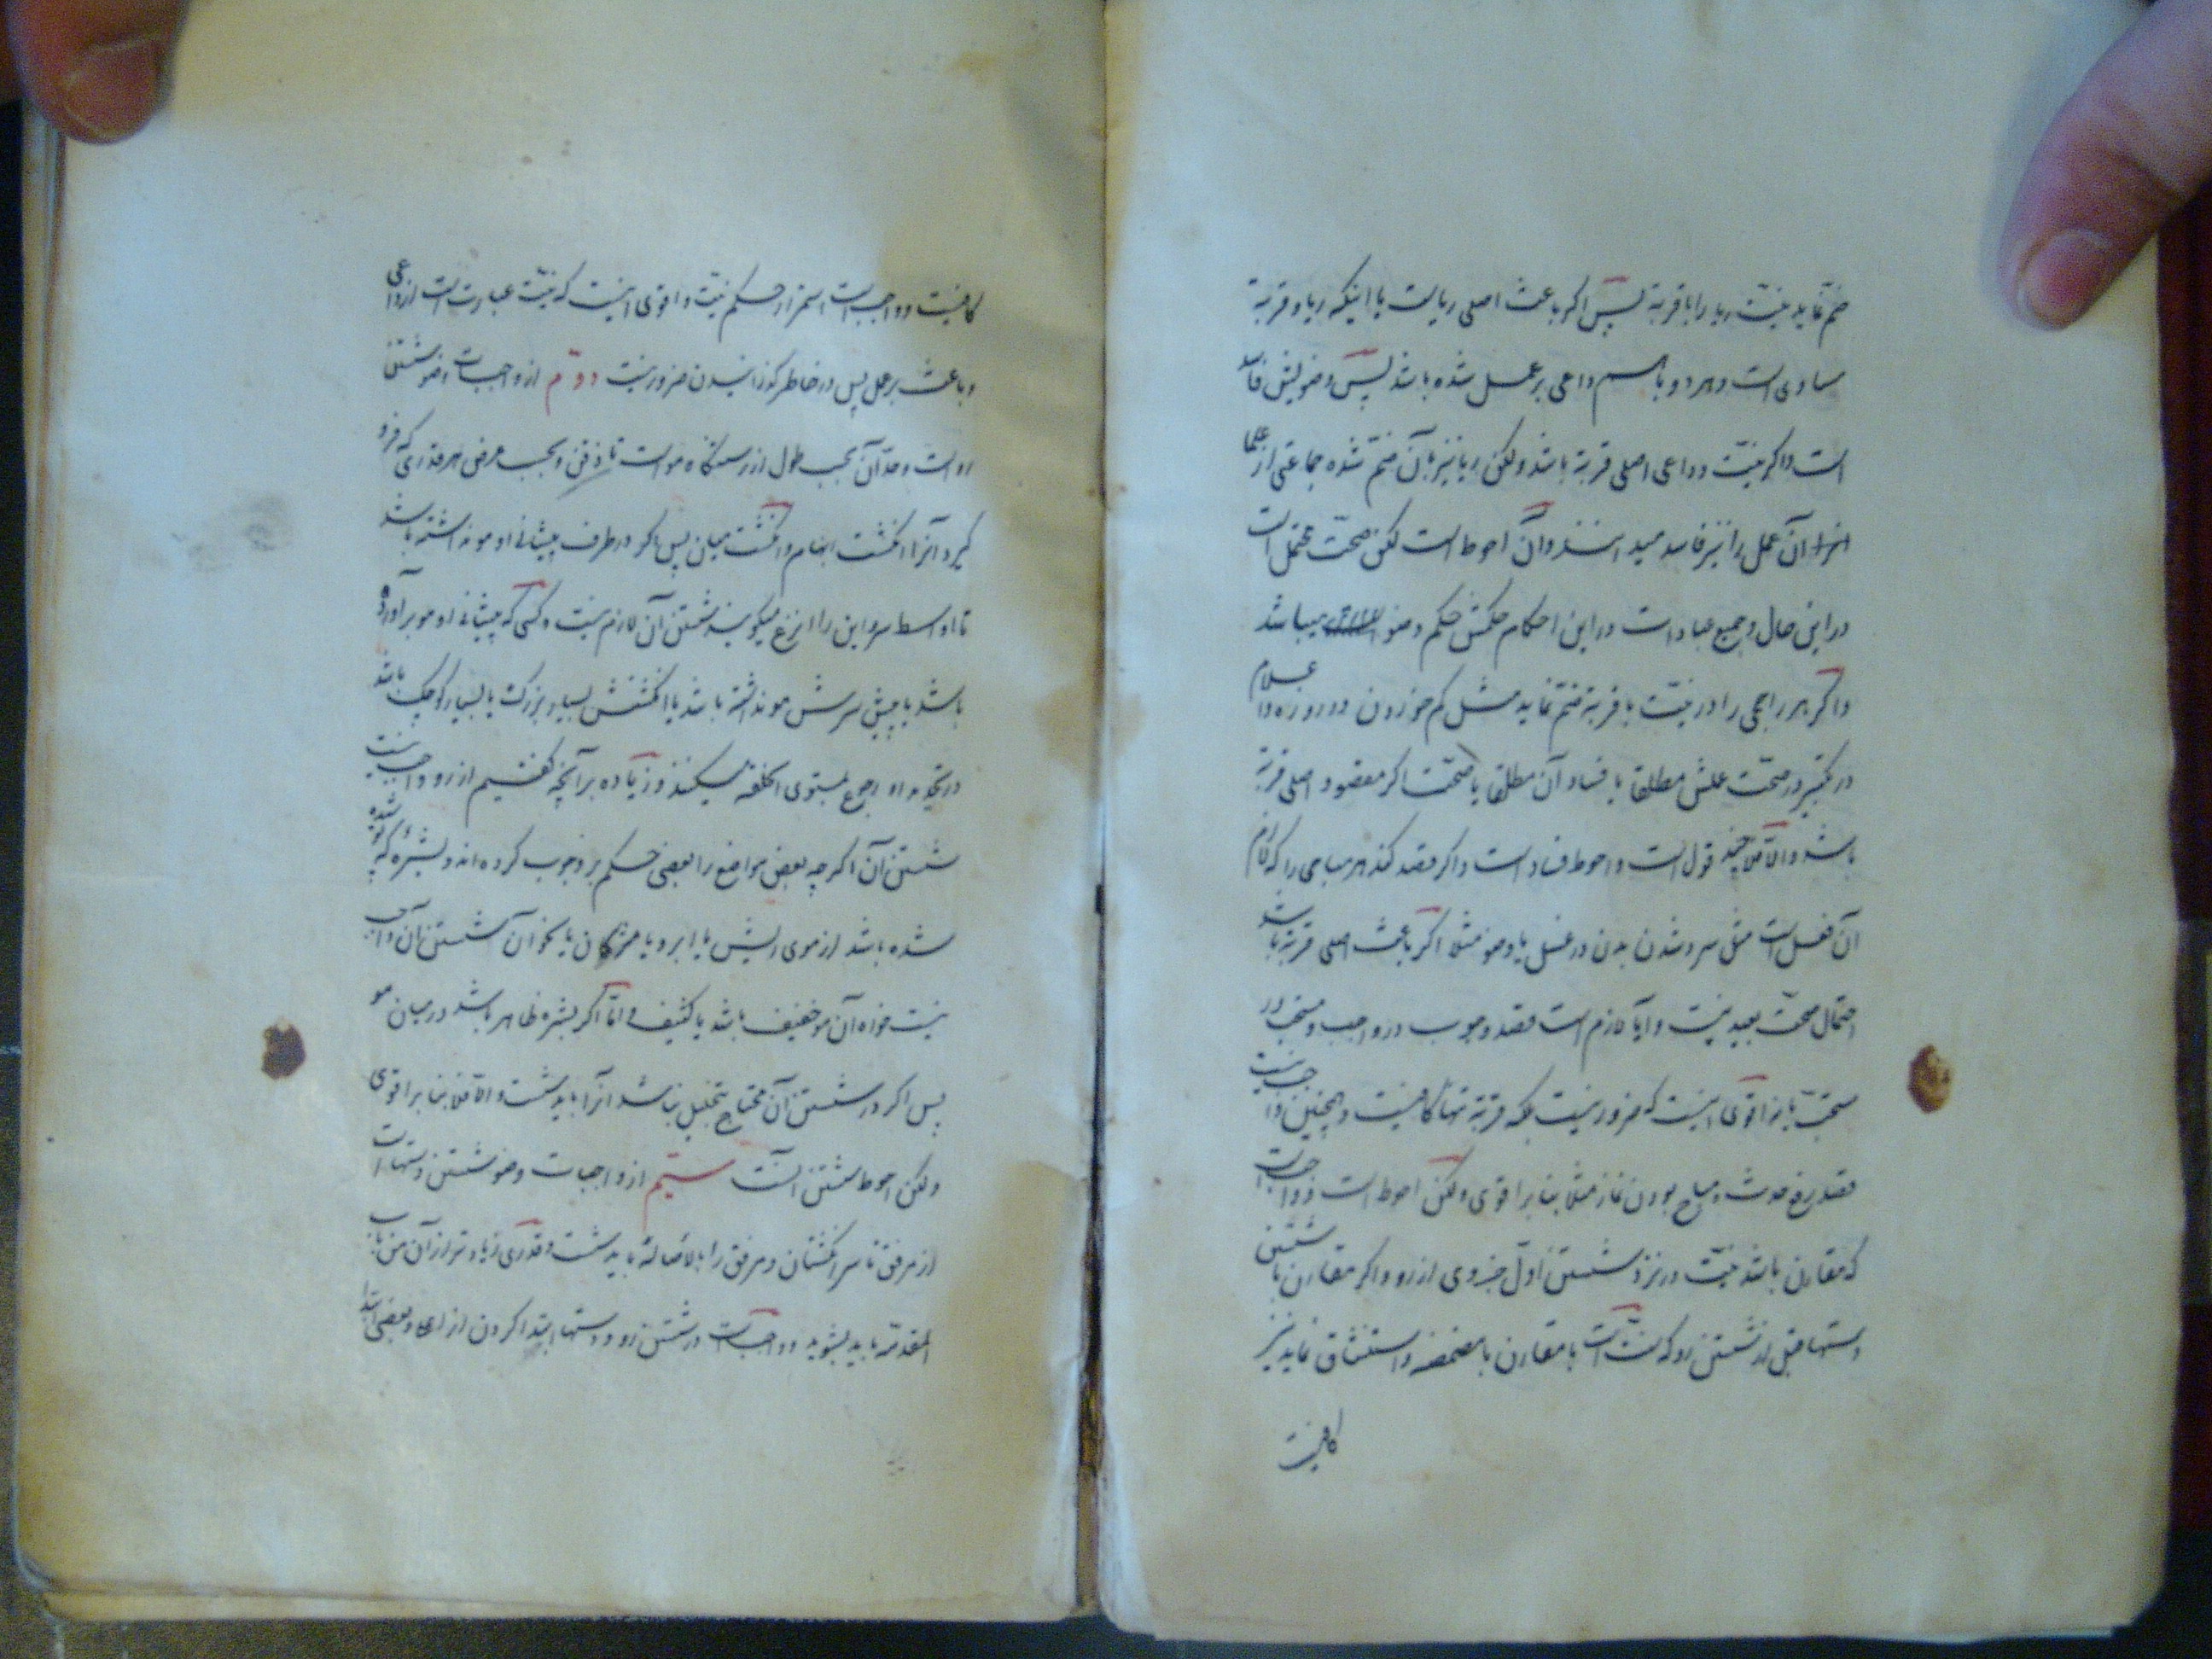 ضم نماید نیت ریا را با قربة پس اکر باعث اصلی ریاست یا اینکه ریا و قربة
مساوی است و هر دو با هم داعی بر عمل شده باشد پس وضویش فاسد
است و اکر نیت و داعی اصلی قربة باشد ولکن ریا نیز بآن ضم شده جماعتی از علما
آن عمل را نیز فاسد میدانند و آن احوط است لکن صحت محتمل است
در این حال و جمیع عبادات در این احکام حکمش حکم وضو میباشد
و اکر هر راجحی را در نیت با قربة ضم نماید مثل کم خوردن در روزه و اعلام
در تکبیر در صحت عملش مطلقا یا فساد آن مطلقا یا صحت اکر مقصود اصلی قربة
باشد و الا فلا چند قول است و احوط فساد است و اکر قصد کند هر مباحی را که لازم
آن فعل است مثل سرد شدن بدن در غسل یا وضو مثلا اکر باعث اصلی قربة باشد
احتمال صحت بعید نیست و آیا لازم است قصد وجوب در واجب و مستحب در
مستحب یا نه اقوی اینست که ضرور نیست بلکه قربة تنها کافیست و همچنین واجب نیست
قصد رفع حدث و مباح بودن نماز مثلا بنا بر اقوی ولکن احوط است و واجب است
که مقارن باشد نیت در نزد شستن اول جزوی از رو و اکر مقارن با شستن
دستها قبل از شستن رو که سنت است یا مقارن با مضمضه و استنشاق نماید نیز
کافیست
کافیست و واجب است استمرار حکم نیت و اقوی اینست که نیت عبارت است از داعی
و باعث بر عمل پس در خاطر کذرانیدن ضرور نیست دوم از واجبات وضو شستن
رو است و حد آن بحسب طول از رستنکاه مو است تا ذقن و بحسب عرض هر قدری که فرو
کیرد آنرا انکشت ابهام و انکشت میان پس اکر در طرف پیشانی او مو نداشته باشد
تا اواسط سر و این را انزع میکویند شستن آن لازم نیست و کسی که پیشانی او مو برآورده
باشد یا پیش سرش مو نداشته باشد یا انکشتش بسیار بزرک یا بسیار کوچک باشد
در تحدید او رجوع بمستوی الخلقه میکنند و زیاده بر آنچه کفتیم از رو واجب نیست
شستن آن اکرچه بعض مواضع را بعضی حکم بر وجوب کرده اند و بشره که پوشیده
شده باشد از موی ریش یا ابرو یا مژکان یا نحو آن شستن آن واجب
نیست خواه آن مو خفیف باشد یا کثیف و اما اکر بشره ظاهر باشد در میان مو
پس اکر در شستن آن محتاج بتخلیل نباشد آنرا باید شست و الا فلا بنا بر اقوی
ولکن احوط شستن است سیم از واجبات وضو شستن دستها است
از مرفق تا سر انکشتان و مرفق را بالاصاله باید شست و قدری زیادتر از آن من باب
المقدمه باید بشوید و واجب است در شستن رو و دستها ابتدا کردن از اعلا و بعضی ابتدا